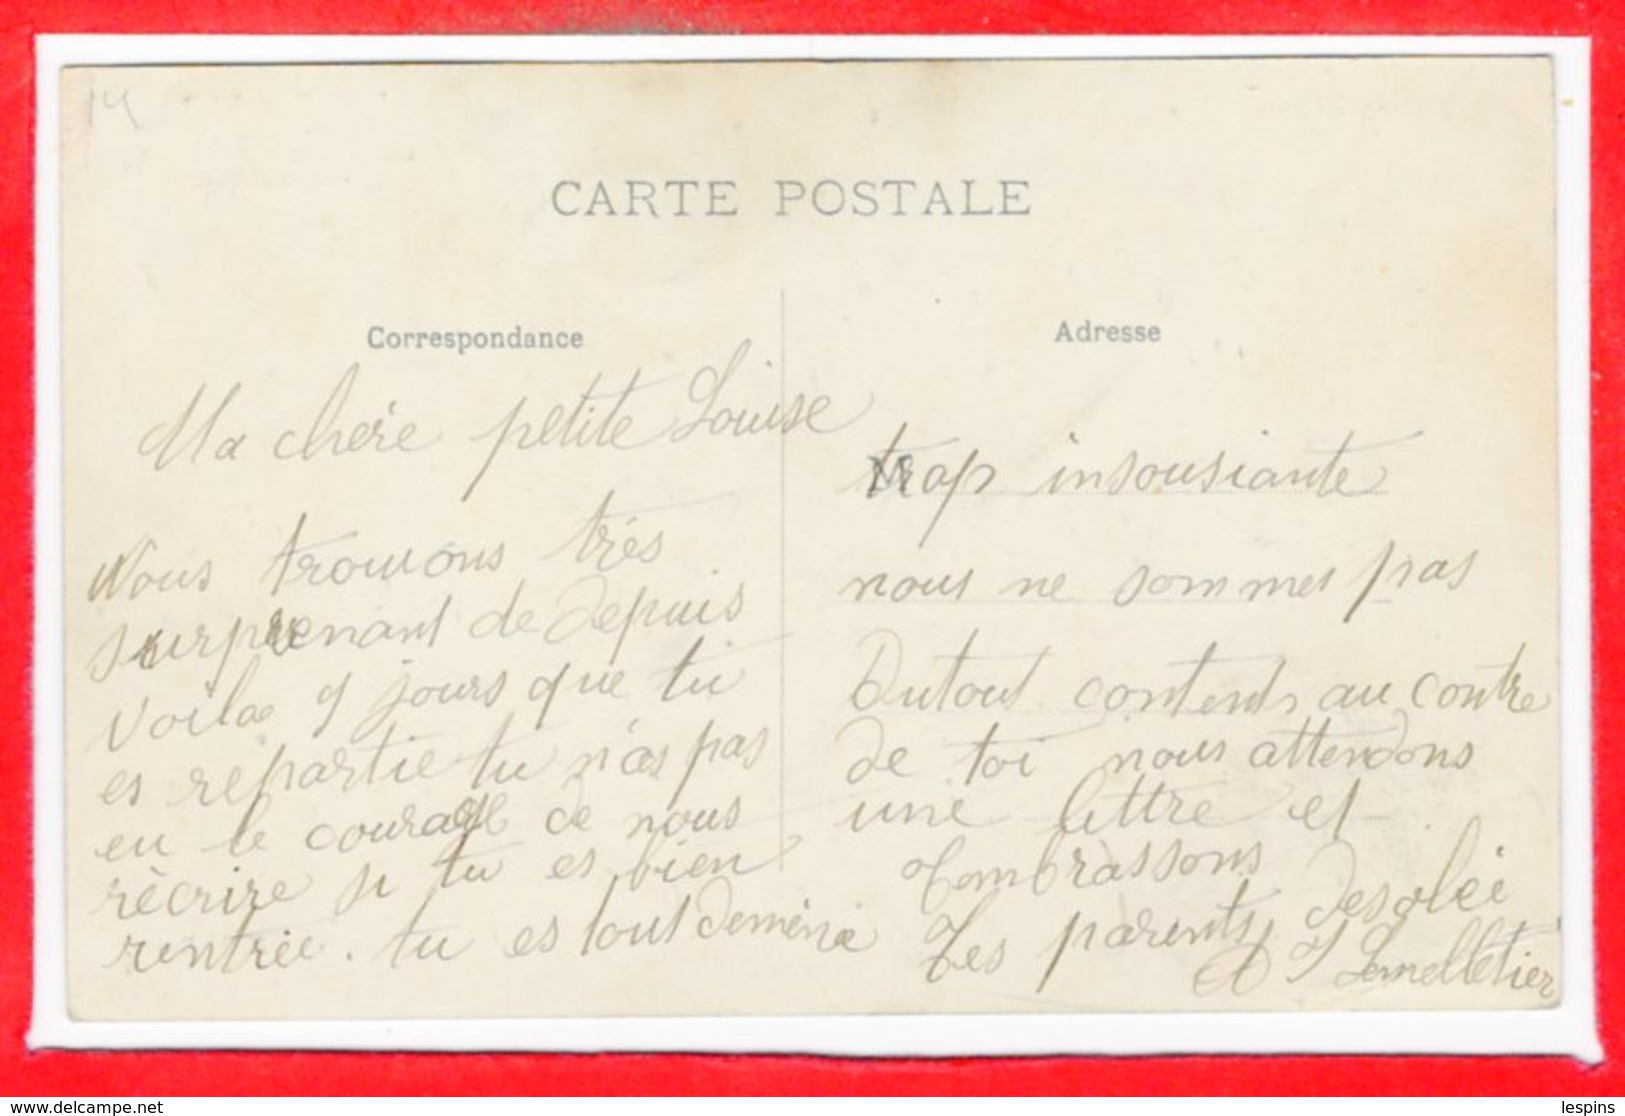 14
CARTE POSTALE
Correspondance
Ma chère petite Louise
Nous trouvons très
surprenant de depuis
voila 9 jours que tu
es repartie tu n'as pas
eu le courage de nous
récrire si tu es bien
rentrée. tu es tout de même
Adresse
trop insousiante
nous ne sommes pas
Dutout contents au contre
de toi nous attendons
une lettre et
t'embrassons
Tes parents desolée
Lemelletier
www.delcampe.net
lespins